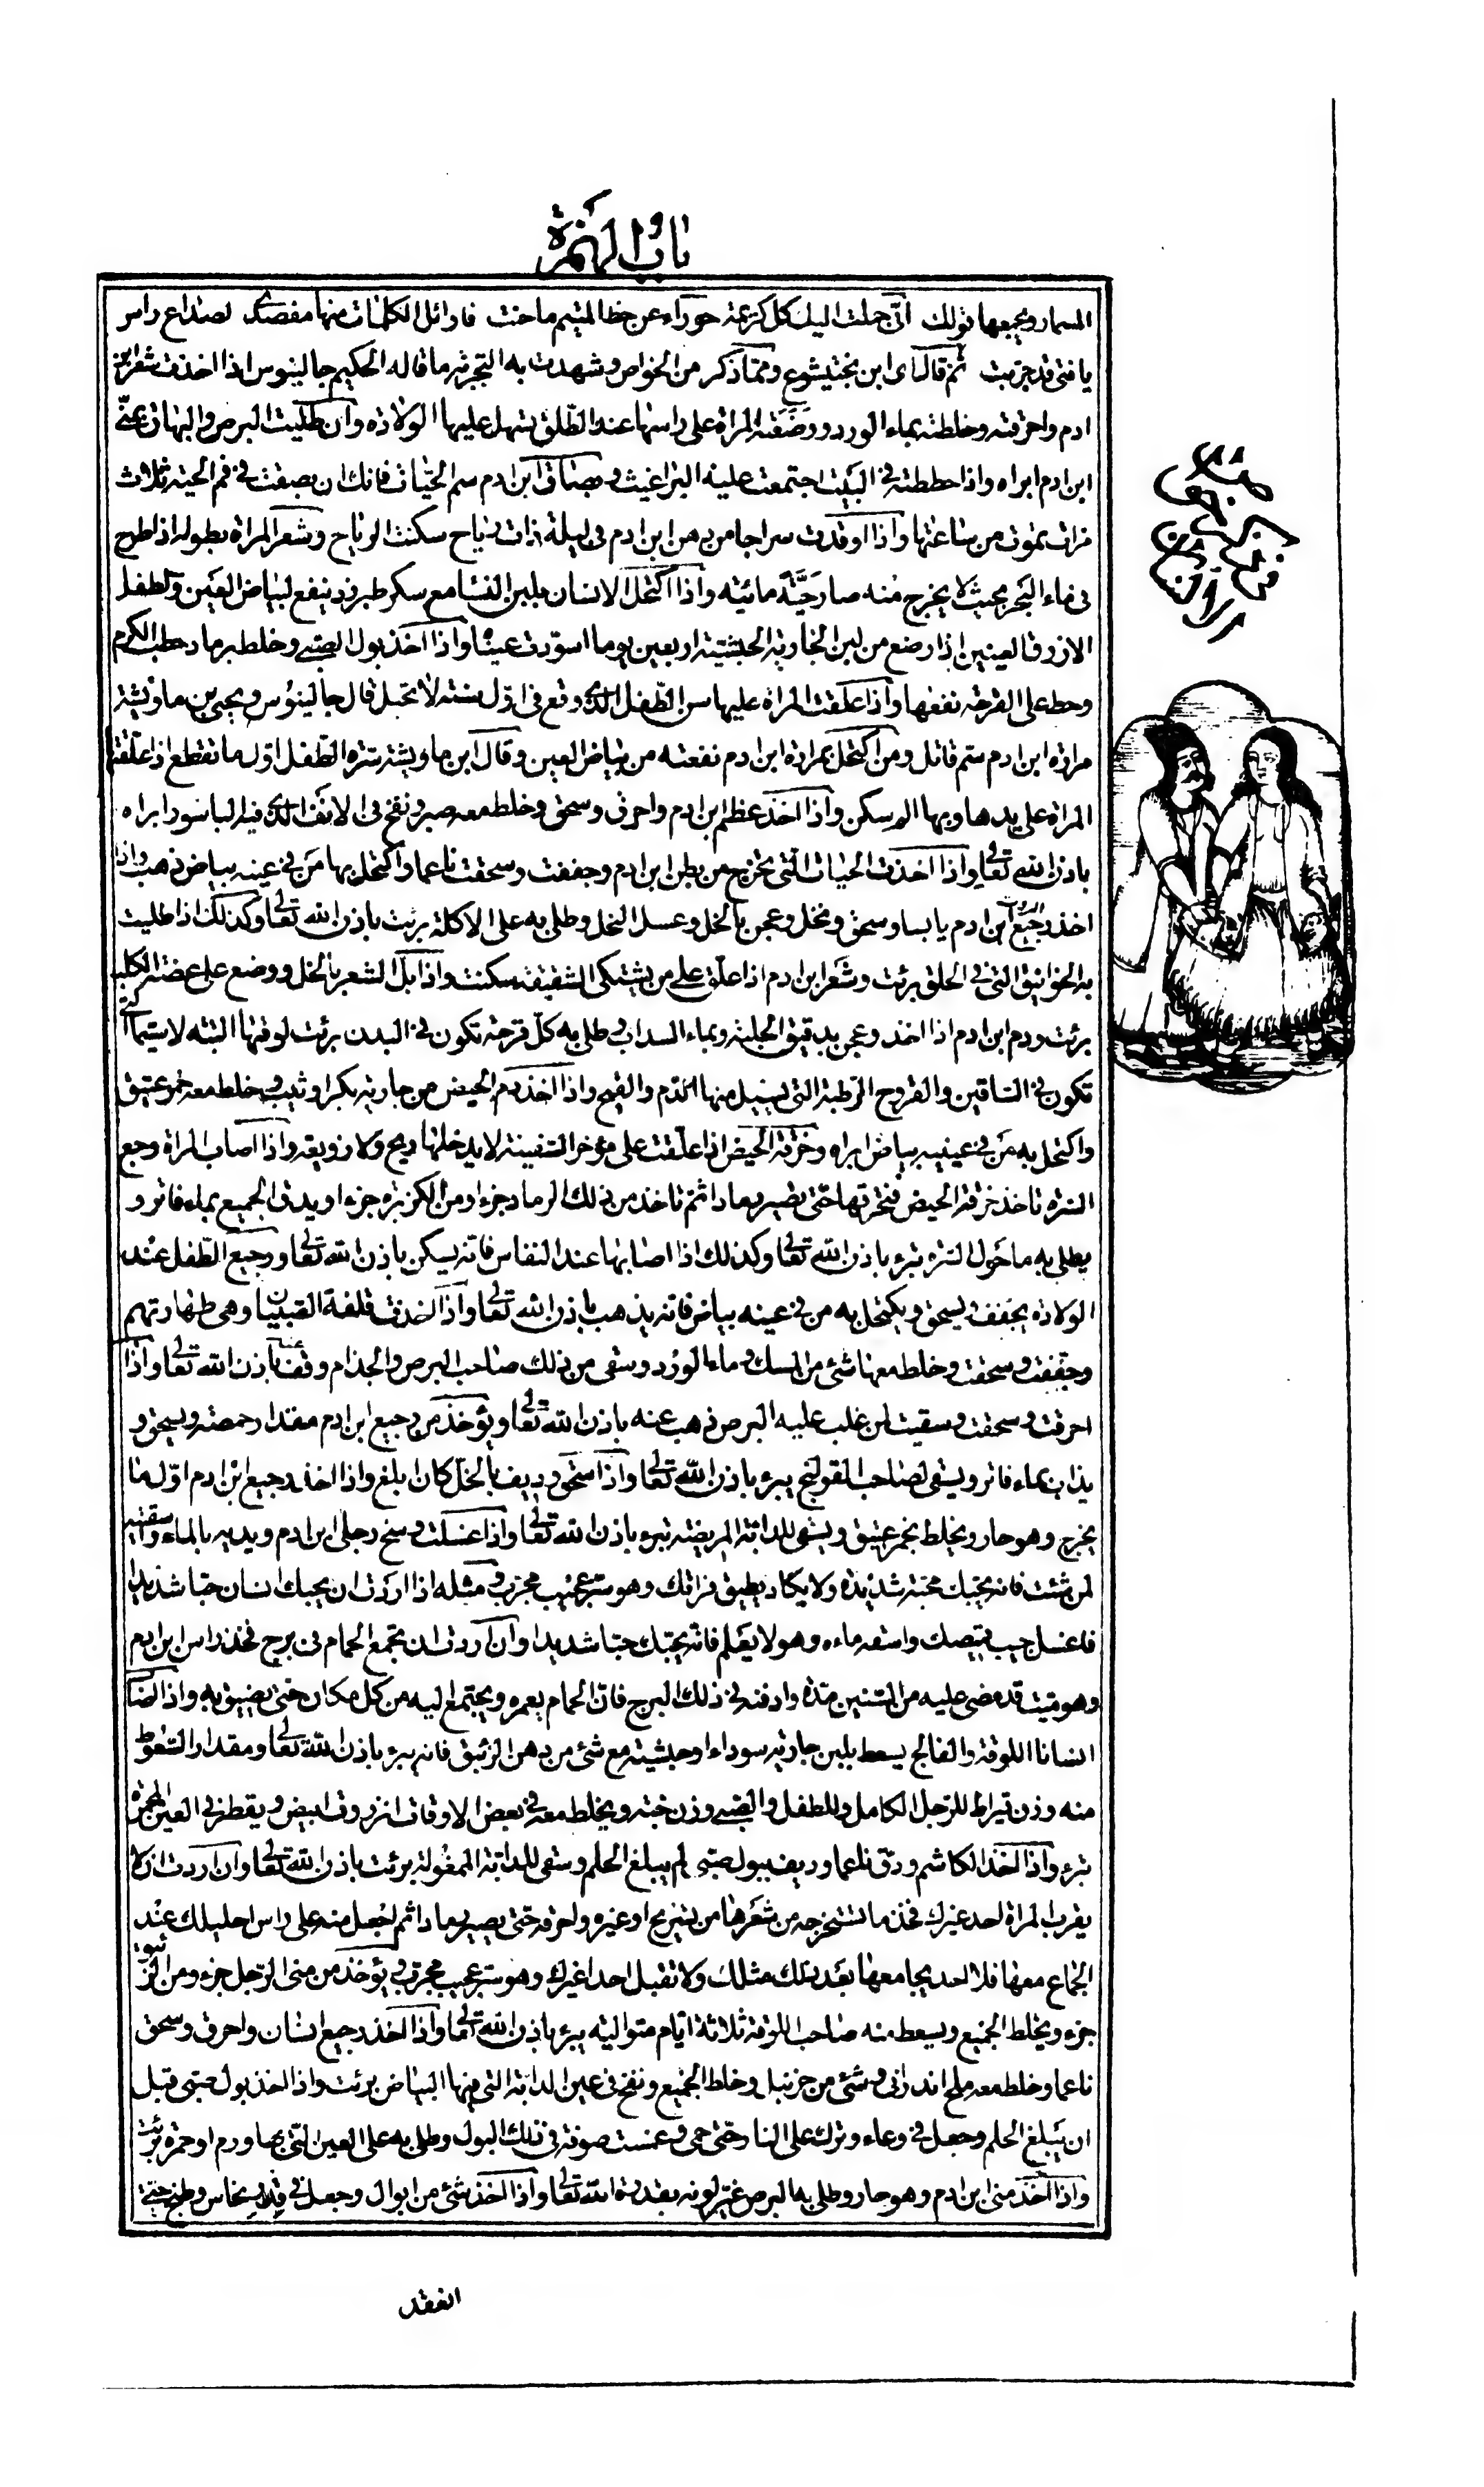 باب الهمزة
المسمار ويجمعها قولك انّى حملت اليك كل كريمة حوراء عن حظ المتيم ما حنت فاوائل الكلمات منها مقصدى لصداع راس
يا فتى قد جربت ثم قال اى ابن بختيشوع ومما ذكر من الخواص وشهدت به التجربة ما قاله الحكيم جالينوس اذا اخذت شعر ابن
ادم واحرقته وخلطته بماء الورد ووضعته المراة على راسها عند الطلق يسهل عليها الولادة وان طليت البرص والبهاق بمنّى
ابن ادم ابراه واذا حططته فى البيت اجتمعت عليه البراغيث وبصاق ابن ادم سم الحيّات فانك ان بصقت فى فم الحية ثلاث
مرات تموت من ساعتها واذا اوقدت سراجا من دهن ابن ادم فى ليلة ذات رياح سكنت الرياح وشعر المراة بطوله اذا طرح
فى ماء البحر بحيث لا يخرج منه صار حيّة مائية واذا اكتحل الانسان بلبن النسا مع سكر طبرزد ينفع لبياض العين والطفل
الازرق العينين اذا رضع من لبن الجارية الحبشية اربعين يوما اسودت عيناه واذا اخذ بول الصبى وخلط برماد حطب الكرم
وحط على القرحة نفعها واذا علقت المراة عليها سن الطفل الذى وقع فى اوّل سنة لا تحبل قال جالينوس ويحيى بن ماويشة
مرارة ابن ادم سم قاتل ومن اكتحل بمرارة ابن ادم نفعته من بياض العين وقال ابن ماويشة سرة الطفل اوّل ما تقطع اذا علقتها
المراة على يدها وبها الم سكن واذا اخذ عظم ابن ادم واحرق وسحق وخلط معه صبر ونفخ فى الانف الذى فيه الباسور ابراه
باذن الله تعالى واذا اخذت الحيات التى تخرج من بطن ابن ادم وجففت وسحقت ناعما واكتحل بها من فى عينه بياض ذهب واذا
اخذ رجيع ابن ادم يابسا وسحق ونخل وعجن بالخل وعسل النحل وطلى به على الاكلة برئت باذن الله تعالى وكذلك اذا طليت
به الخوانيق التى فى الحلق برئت وشعر ابن ادم اذا علق على من يشتكى الشقيقة سكنت واذا بل الشعر بالخل ووضع على عضة الكلب
برئت ودم ابن ادم اذا اخذ وعجن بدقيق الحلبة وبماء السداب وطلى به كل قرحة تكون فى البدن برئت لوقتها البتة لا سيما التى
تكون فى الساقين والقروح الرطبة التى يسيل منها الدم والقيح واذا اخذ دم الحيض من جارية بكر او ثيب وخلط معه خمر عتيق
واكتحل به من فى عينيه بياض ابراه وخرقة الحيض اذا علقت على مؤخر السفينة لا يدخلها ريح ولا زوبعة واذا اصاب المراة وجع
السرة تاخذ خرقة الحيض فتحرقها حتى تصير رمادا ثم تاخذ من ذلك الرماد جزءا ومن الكزبرة جزءا ويدق الجميع بماء فاتر و
يطلى به ما حول السرة تبرء باذن الله تعالى وكذلك اذا اصابها عند النفاس فانه يسكن باذن الله تعالى ورجيع الطفل عند
الولادة يجفف ويسحق ويكتحل به من فى عينه بياض فانه يذهب باذن الله تعالى واذا اخذت قلفة الصبيان وهى طهارتهم
وجففت وسحقت وخلط معها شئ من المسك وماء الورد وسقى من ذلك صاحب البرص والجذام وقف باذن الله تعالى واذا
احرقت وسحقت وسقيت لمن غلب عليه البرص ذهب عنه باذن الله تعالى ويؤخذ من رجيع ابن ادم مقدار حمصة ويسحق و
يذاب بماء فاتر ويسقى لصاحب القولنج يبرء باذن الله تعالى واذا سحق وديف بالخل كان ابلغ واذا اخذ رجيع ابن ادم اوّل ما
يخرج وهو حار ويخلط بخمر عتيق ويسقى للدابة المريضة تبرء باذن الله تعالى واذا غسلت وسخ رجلى ابن ادم ويديه بالماء وسقيته
لمن شئت فانه يحبك محبة شديدة ولا يكاد يطيق فراقك وهو سر عجيب مجرب ومثله اذا اردت ان يحبك انسان حبا شديدا
فاغسل جيب قميصك واسقه ماءه وهو لا يعلم فانه يحبك حبا شديدا وان اردت ان يجتمع الحمام فى برج فخذ راس ابن ادم
وهو ميت قد مضى عليه من السنين مدة وادفنه فى ذلك البرج فان الحمام يعمره ويجتمع اليه من كل مكان حتى يضيق به واذا اصاب
انسانا اللوقة والفالج يسعط بلبن جارية سوداء او حبشية مع شئ من دهن الزئبق فانه يبرء باذن الله تعالى ومقدار السعوط
منه وزن قيراط للرجل الكامل وللطفل والصبى وزن حبة ويخلط معه فى بعض الاوقات انزروت ابيض ويقطر فى العين المحمرة
تبرء واذا اخذ الكاشم ودق ناعما وديف ببول صبى لم يبلغ الحلم وسقى للدابة الممغولة برئت باذن الله تعالى وان اردت ان لا
يقرب المراة احد غيرك فخذ ما تستخرجه من شعرها من تسريح او غيره واحرقه حتى يصير رمادا ثم اجعل منه على راس احليلك عند
الجماع معها فلا احد يجامعها بعد ذلك مثلك ولا تقبل احدا غيرك وهو سر عجيب مجرب ويؤخذ من منى الرجل جزء ومن الزئبق
جزء ويخلط الجميع ويسعط منه صاحب اللوقة ثلاثة ايام متوالية يبرء باذن الله تعالى واذا اخذ رجيع انسان واحرق وسحق
ناعما وخلط معه ملح اندرانى وشئ من حزنبل وخلط الجميع ونفخ فى عين الدابة التى فيها البياض برئت واذا اخذ بول صبى قبل
ان يبلغ الحلم وجعل فى وعاء وترك على النار حتى حمى وغمست صوفة فى ذلك البول وطلى به على العين التى بها ورم او حمرة برئت
واذا اخذ منى ابن ادم وهو حار وطلى به البرص غير لونه بقدرة الله تعالى واذا اخذ شئ من ابوال وجعل فى قدر نحاس وطبخ حتى
انعقد